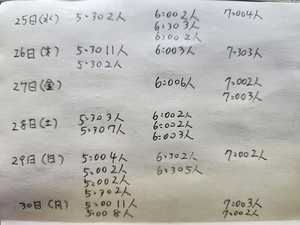 25日(水) 5:30 2人 6:00 2人 7:00 4人
6:30 3人
6:00 2人
26日(木) 5:30 11人 6:00 3人 7:30 3人
5:30 2人
27日(金) 6:00 6人 7:00 2人
7:00 3人
28日(土) 5:30 3人 6:00 2人
5:30 7人 6:00 2人
6:00 3人
29日(日) 5:00 4人 6:30 2人 7:00 2人
5:00 2人 6:30 5人
5:00 2人
5:30 2人
30日(月) 5:00 11人 7:00 3人
5:00 8人 7:00 2人